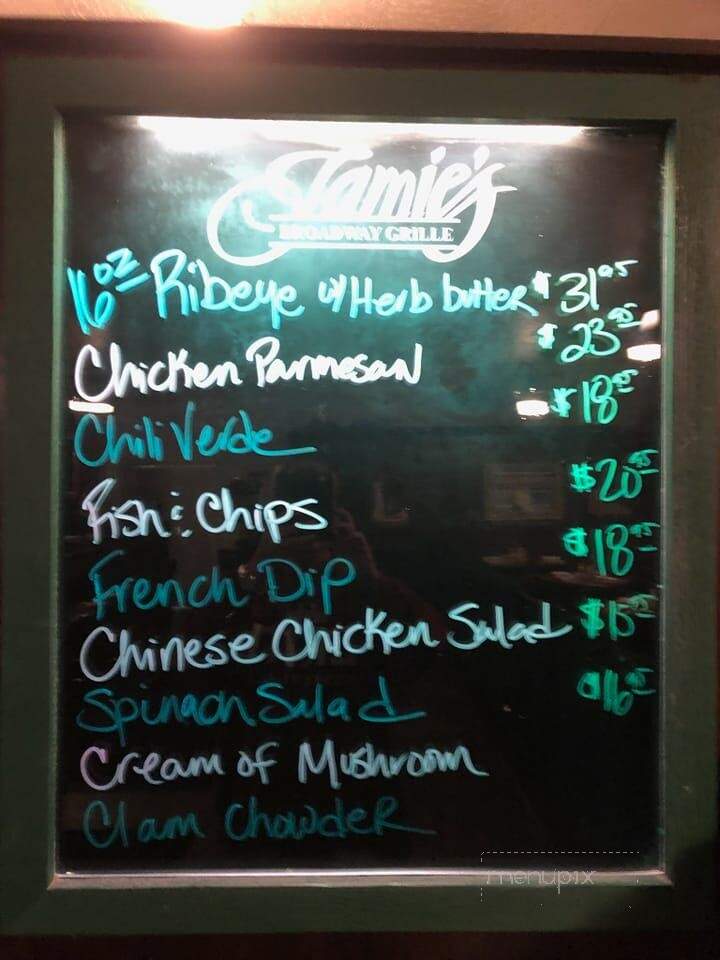 Jamie's
BROADWAY GRILLE
16oz Ribeye w/ Herb butter $31.95
Chicken Parmesan $23.95
Chili Verde $18.95
Fish & Chips $20.95
French Dip $18.95
Chinese Chicken Salad $15.95
Spinach Salad $16.95
Cream of Mushroom
Clam Chowder
menupix